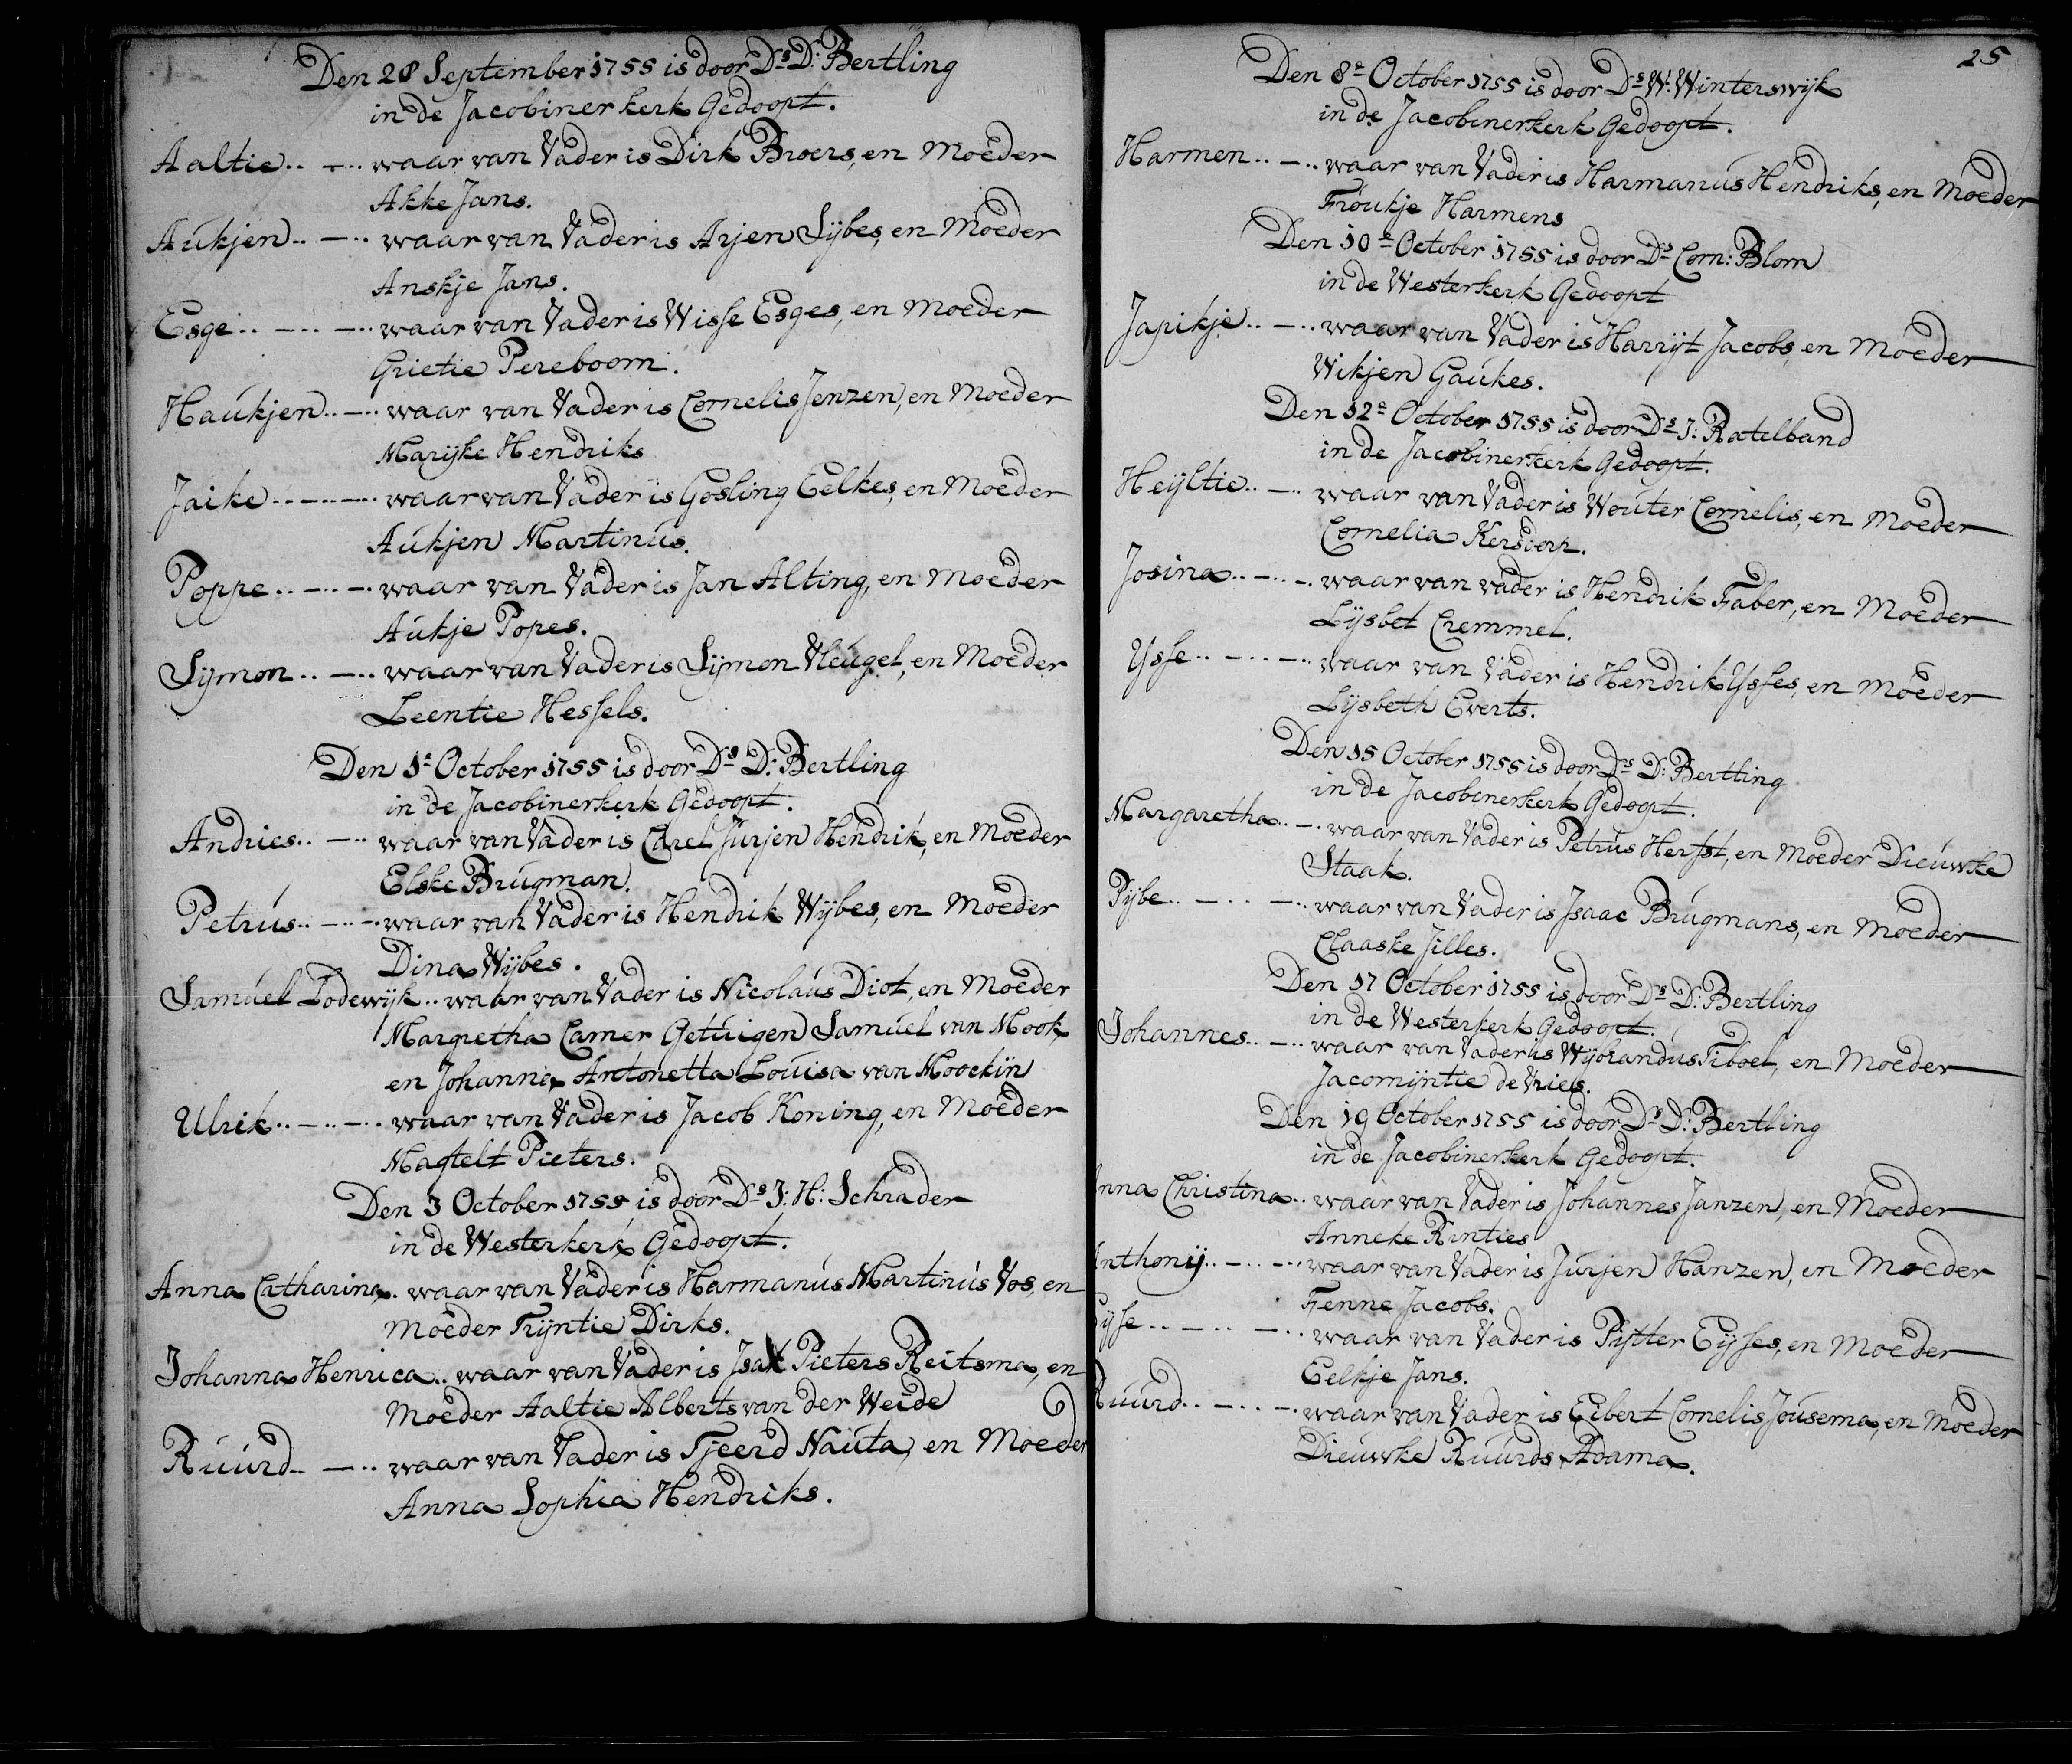 Den 28 September 1755 is door Ds D: Bertling
in de Jacobiner kerk Gedoopt.
Aaltie .. -- .. waar van Vader is Dirk Broers, en Moeder
Akke Jans.
Aukjen .. -- .. waar van Vader is Arjen Sybes, en Moeder
Anskje Jans.
Esge .. -- .. -- .. waar van Vader is Wisse Esges, en Moeder
Grietie Pereboom.
Haukjen .. -- .. waar van Vader is Cornelis Jenzen, en Moeder
Maryke Hendriks
Jaike .. -- .. -- .. waar van Vader is Gosling Eelkes, en Moeder
Aukjen Martinus.
Poppe .. -- .. -- .. waar van Vader is Jan Alting, en Moeder
Aukje Popes.
Symon .. -- .. waar van Vader is Symon Vleugel, en Moeder
Leentie Hessels.
Den 1e October 1755 is door Ds D: Bertling
in de Jacobinerkerk Gedoopt.
Andries .. -- .. waar van Vader is Carel Jurjen Hendrik, en Moeder
Elske Brugman.
Petrus .. -- .. waar van Vader is Hendrik Wybes, en Moeder
Dina Wybes.
Samuel Lodewyk .. waar van Vader is Nicolaus Diot, en Moeder
Margretha Camer Getuigen Samuel van Mook,
en Johanna Antonetta Louisa van Moockin
Ulrik .. -- .. -- .. waar van Vader is Jacob Koning, en Moeder
Magtelt Pieters.
Den 3 October 1755 is door Ds J: H: Schrader
in de Westerkerk Gedoopt.
Anna Catharina .. waar van Vader is Harmanus Martinus Vos, en
Moeder Tryntie Dirks.
Johanna Henrica .. waar van Vader is Isak Pieters Reitsma, en
Moeder Aaltie Alberts van der Weide
Ruurd .. -- .. waar van Vader is Tjeerd Nauta, en Moeder
Anna Sophia Hendriks.
25
Den 8e October 1755 is door Ds W: Winterswyk
in de Jacobinerkerk Gedoopt.
Harmen .. -- .. waar van Vader is Harmanus Hendriks, en Moeder
Froukje Harmens
Den 10e October 1755 is door Ds Corn: Blom
in de Westerkerk Gedoopt
Japikje .. -- .. waar van Vader is Harryt Jacobs, en Moeder
Wikjen Gaukes.
Den 12e October 1755 is door Ds J: Ratelband
in de Jacobinerkerk Gedoopt.
Heyltie .. -- .. waar van Vader is Wouter Cornelis, en Moeder
Cornelia Kersdorp.
Josina .. -- .. waar van vader is Hendrik Faber, en Moeder
Lysbet Cremmel.
Ysse .. -- .. -- .. waar van Vader is Hendrik Ysses, en Moeder
Lysbeth Everts.
Den 15 October 1755 is door Ds D: Bertling
in de Jacobinerkerk Gedoopt.
Margaretha .. -- .. waar van Vader is Petrus Herfst, en Moeder Dieuwke
Staak.
Pybe .. -- .. -- .. waar van Vader is Isaac Brugmans, en Moeder
Claaske Jilles.
Den 17 October 1755 is door Ds D: Bertling
in de Westerkerk Gedoopt.
Johannes .. -- .. waar van Vader is Wybrandus Tiboel, en Moeder
Jacomyntie de Vries.
Den 19 October 1755 is door Ds D: Bertling
in de Jacobinerkerk Gedoopt.
nna Christina .. waar van Vader is Johannes Janzen, en Moeder
Anneke Rinties
nthony .. -- .. -- .. waar van Vader is Jurjen Hanzen, en Moeder
Fenne Jacobs.
yse .. -- .. -- .. waar van Vader is Pytter Eyses, en Moeder
Eelkje Jans.
Ruurd .. -- .. -- .. waar van Vader is Eibert Cornelis Jousema, en Moeder
Dieuwke Ruurds Adama.